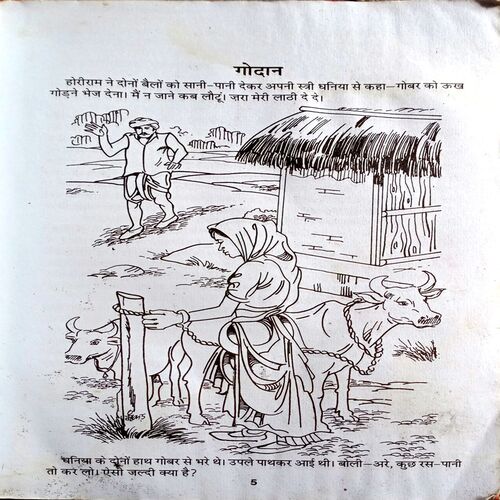 गोदान
होरीराम ने दोनों बैलों को सानी-पानी देकर अपनी स्त्री धनिया से कहा—गोबर को ऊख
गोड़ने भेज देना। मैं न जाने कब लौटूं। ज़रा मेरी लाठी दे दे।
धनिया के दोनों हाथ गोबर से भरे थे। उपले पाथकर आई थी। बोली-अरे, कुछ रस-पानी
तो कर लो। ऐसी जल्दी क्या है?
5